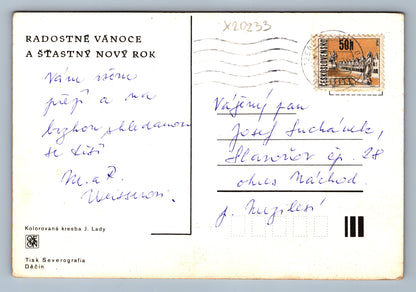 X20233
RADOSTNÉ VÁNOCE
A ŠŤASTNÝ NOVÝ ROK
50h
ČESKOSLOVENSKO
Vám všem
přejí a na
brzkou shledanou
se těší
M. a
Vážený pan
Josef Suchánek,
Slavoňov čp. 28
okres Náchod.
Kolorovaná kresba J. Lady
Tisk Severografia
Děčín